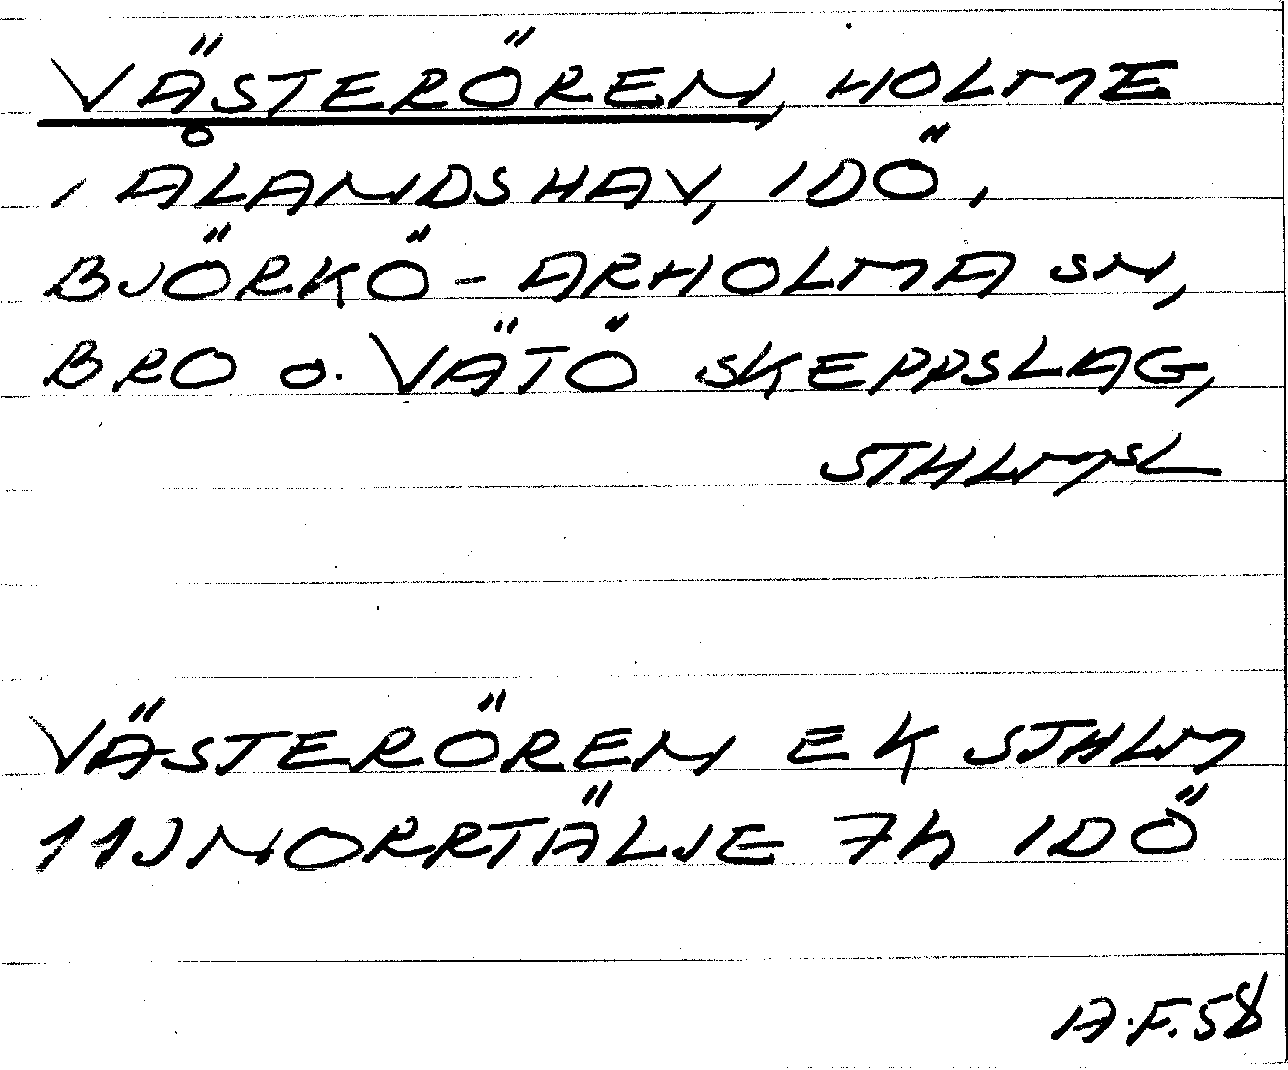 VÄSTERÖREN, HOLME
I ÅLANDSHAV, IDÖ,
BJÖRKÖ - ARHOLMA SN,
BRO o. VÄTÖ SKEPPSLAG,
STHLMSL
VÄSTERÖREN EK STHLM
11J NORRTÄLJE 7h IDÖ
A.F. 58